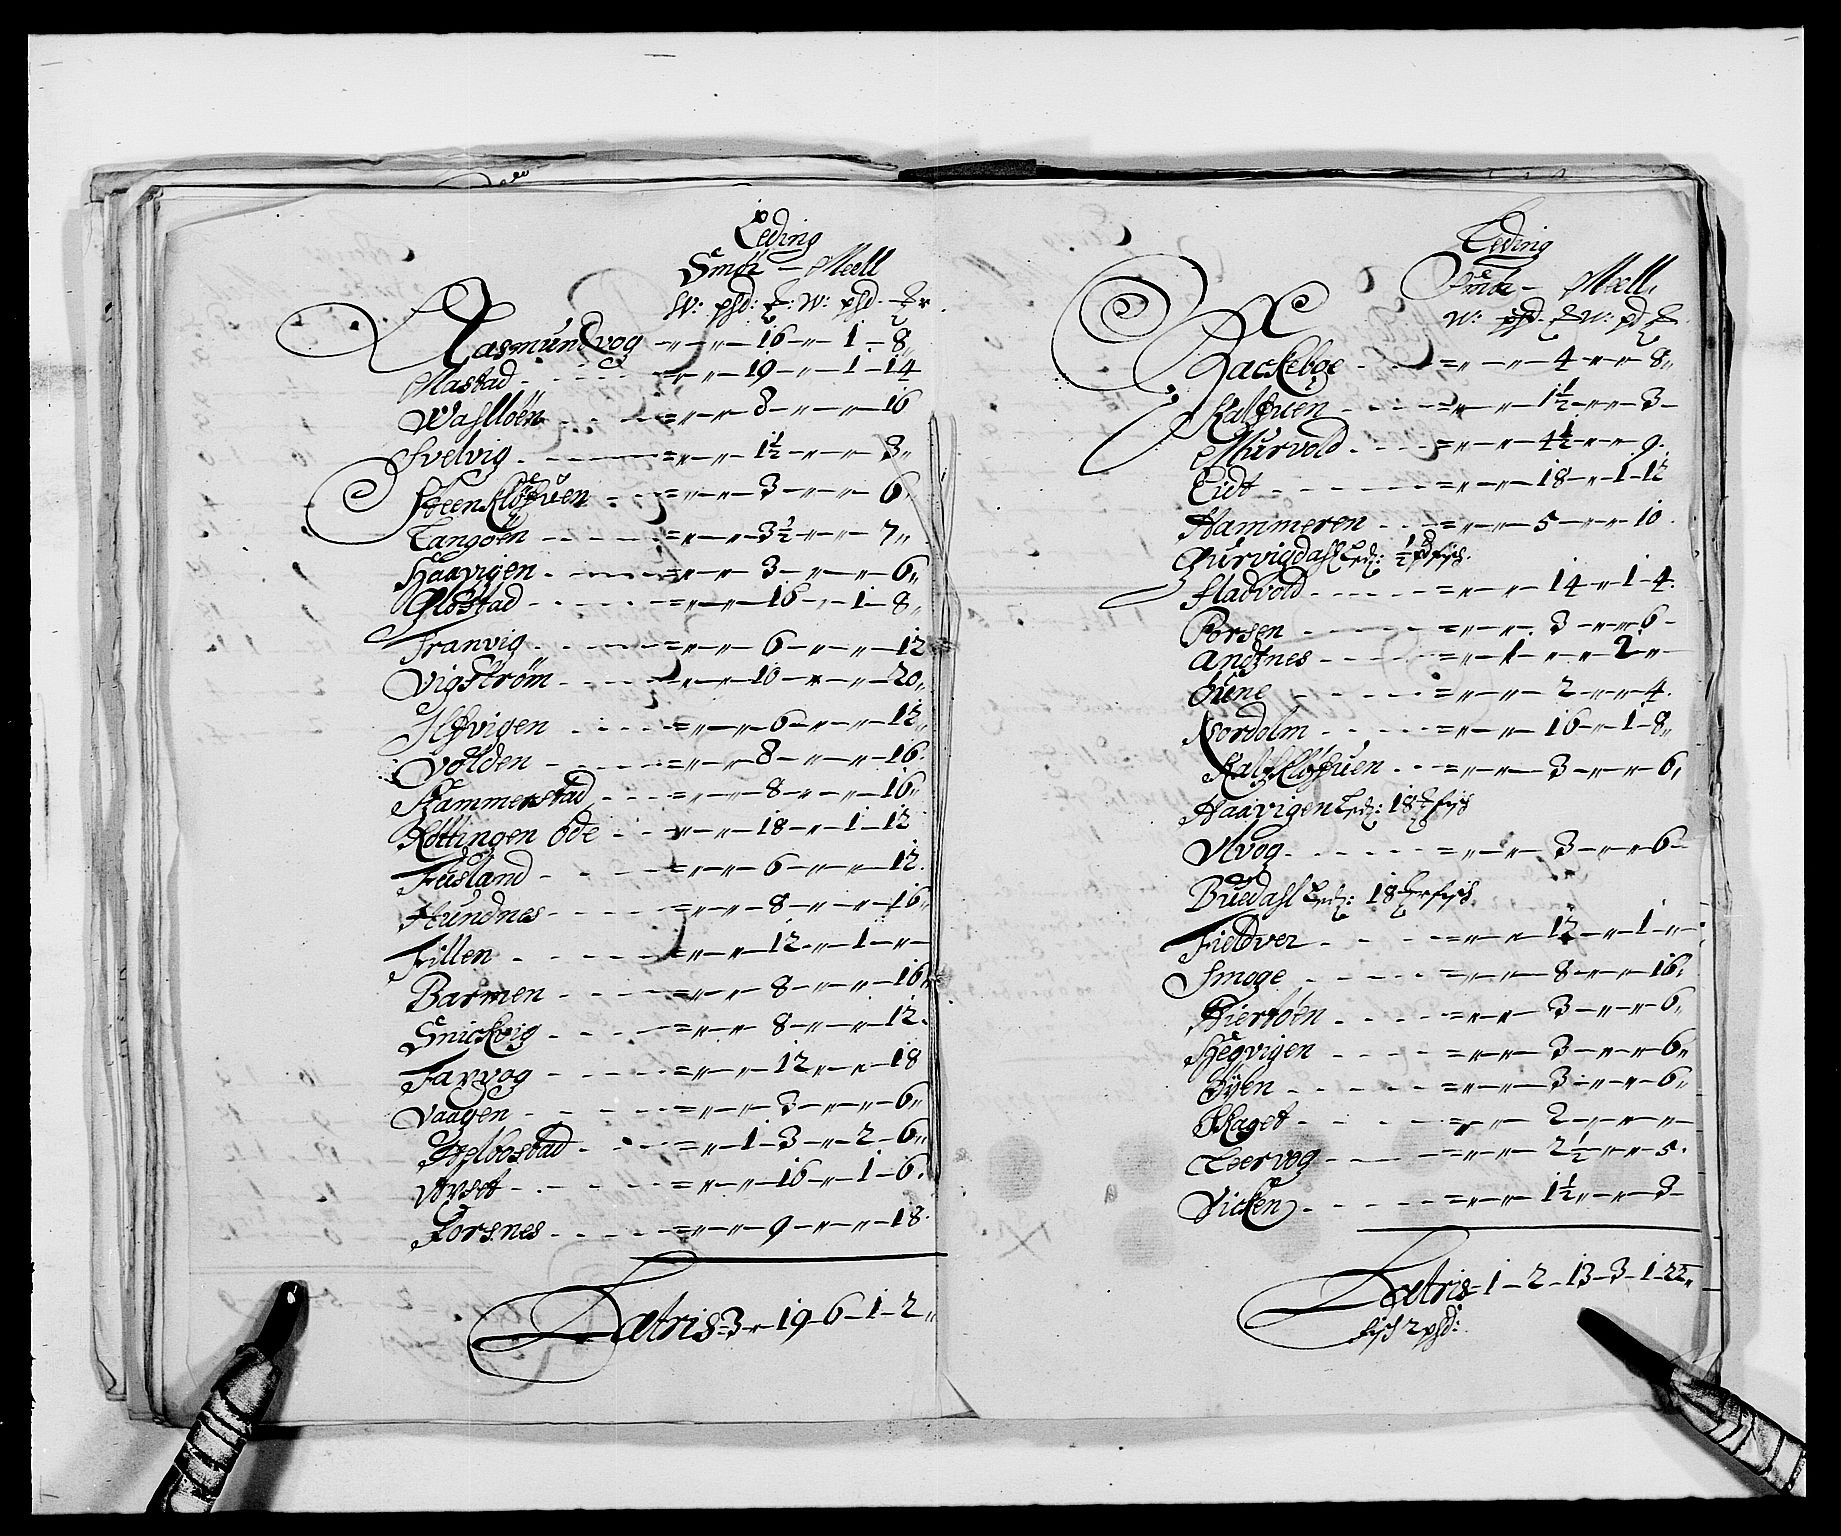 Leding
Smör – Meell
W: psd: W: psd.
Rasmundvog - " - " - 16 - " - 1 - 8 "
Mastad - " - " - 19 - " - 1 - 14
Waslløen - " - " - 8 - " - " - 16
Svelvig - " - " - 1½ - " - " - 3 "
SteenKlöfuen - " - " - 3 - " - " - 6 "
Tangöen - " - " - 3½ - " - " - 7 "
Haavigen - " - " - 3 - " - " - 6 "
Glöstad - " - " - 16 - " - 1 - 8 "
Tranvig - " - " - 6 - " - " - 12
Vigström - " - " - 10 - " - " - 20 "
Ilfvigen - " - " - 6 - " - " - 12 "
Volden - " - " - 8 - " - " - 16
Hammerstad - " - " - 8 - " - " - 16 "
Kottingen öde - " - " - 18 - " - 1 - 12
Fusland - " - " - 6 - " - " - 12
Hundnes - " - " - 8 - " - " - 16 "
Fillen - " - " - 12 - " - 1 - " -
Barmen - " - " - 8 - " - " - 16 "
Snickvig - " - " - 8 - " - " - 12
Farvog - " - " - 12 - " - " - 18
Vaagen - " - " - 3 - " - " - 6 "
Selbostad - " - 1 - 3 - " - 2 - 6 "
Ulvset - " - " - 16 - " - 1 - 6
Forsnes - " - " - 9 - " - " - 18
Latris - 3 - " - 19 - 6 - 1 - 2 "
Leding
Smör – Meell
W: psd. W: pd
Backeböe - " - " - 4 - " - " - 8 "
Kalfuen - " - " - 1½ - " - " - 3 -
Murvold - " - " - 4½ - " - " - 9
Eidt - " - " - 18 - " - 1 - 12
Hammeren - " - " - 5 - " - " - 10
Gurvigdahl Led: ½ pd fisch
Stadvold - " - " - 14 - " - 1 - 4
Porsen - " - " - 3 - " - " - 6 -
Andtnes - " - 1 - " - " - 2 - " -
Sune - " - " - 2 - " - " - 4
Nordolm - " - " - 16 - " - 1 - 8 "
KalfKlöfuen - " - " - 3 - " - " - 6
Haavigen Led: 18 fisch
Ulvog - " - " - 3 - " - " - 6 -
Buedahl Led: 18 fisch
Fieldver - " - " - 12 - " - 1 - " -
Smoge - " - " - 8 - " - " - 16
Hiertöen - " - " - 3 - " - " - 6 "
Hegvigen - " - " - 3 - " - " - 6 "
Byen - " - " - 3 - " - " - 6 "
Skaget - " - " - 2 - " - " - " -
Teervog - " - " - 2½ - " - " - 5
Vicken - " - " - 1½ - " - " - 3 -
Latris - 1 - 2 - 13 - 3 - 1 - 22 "
fisch 2 psd: